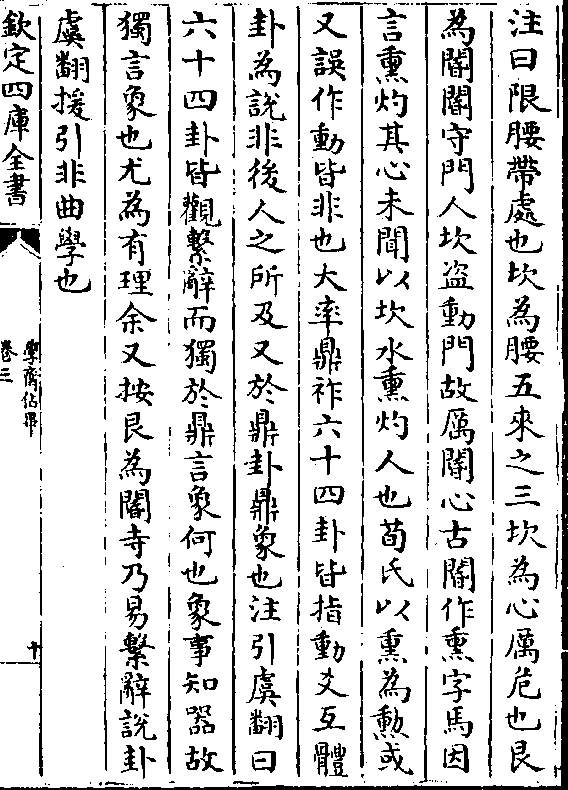 注曰限腰帶處也坎為腰五來之三坎為心厲危也艮
為閽閽守門人坎盗動門故厲閽心古閽作熏字馬因
言熏灼其心未聞以坎水熏灼人也荀氏以熏為勲或
又誤作動皆非也大率鼎祚六十四卦皆指動爻互體
卦為說非後人之所及又於鼎卦鼎象也注引虞翻曰
六十四卦皆觀繫辭而獨於鼎言象何也象事知器故
獨言象也尤為有理余又按艮為閽寺乃易繫辭說卦
虞翻援引非曲學也
欽定四庫全書
學齋佔畢
卷三
十